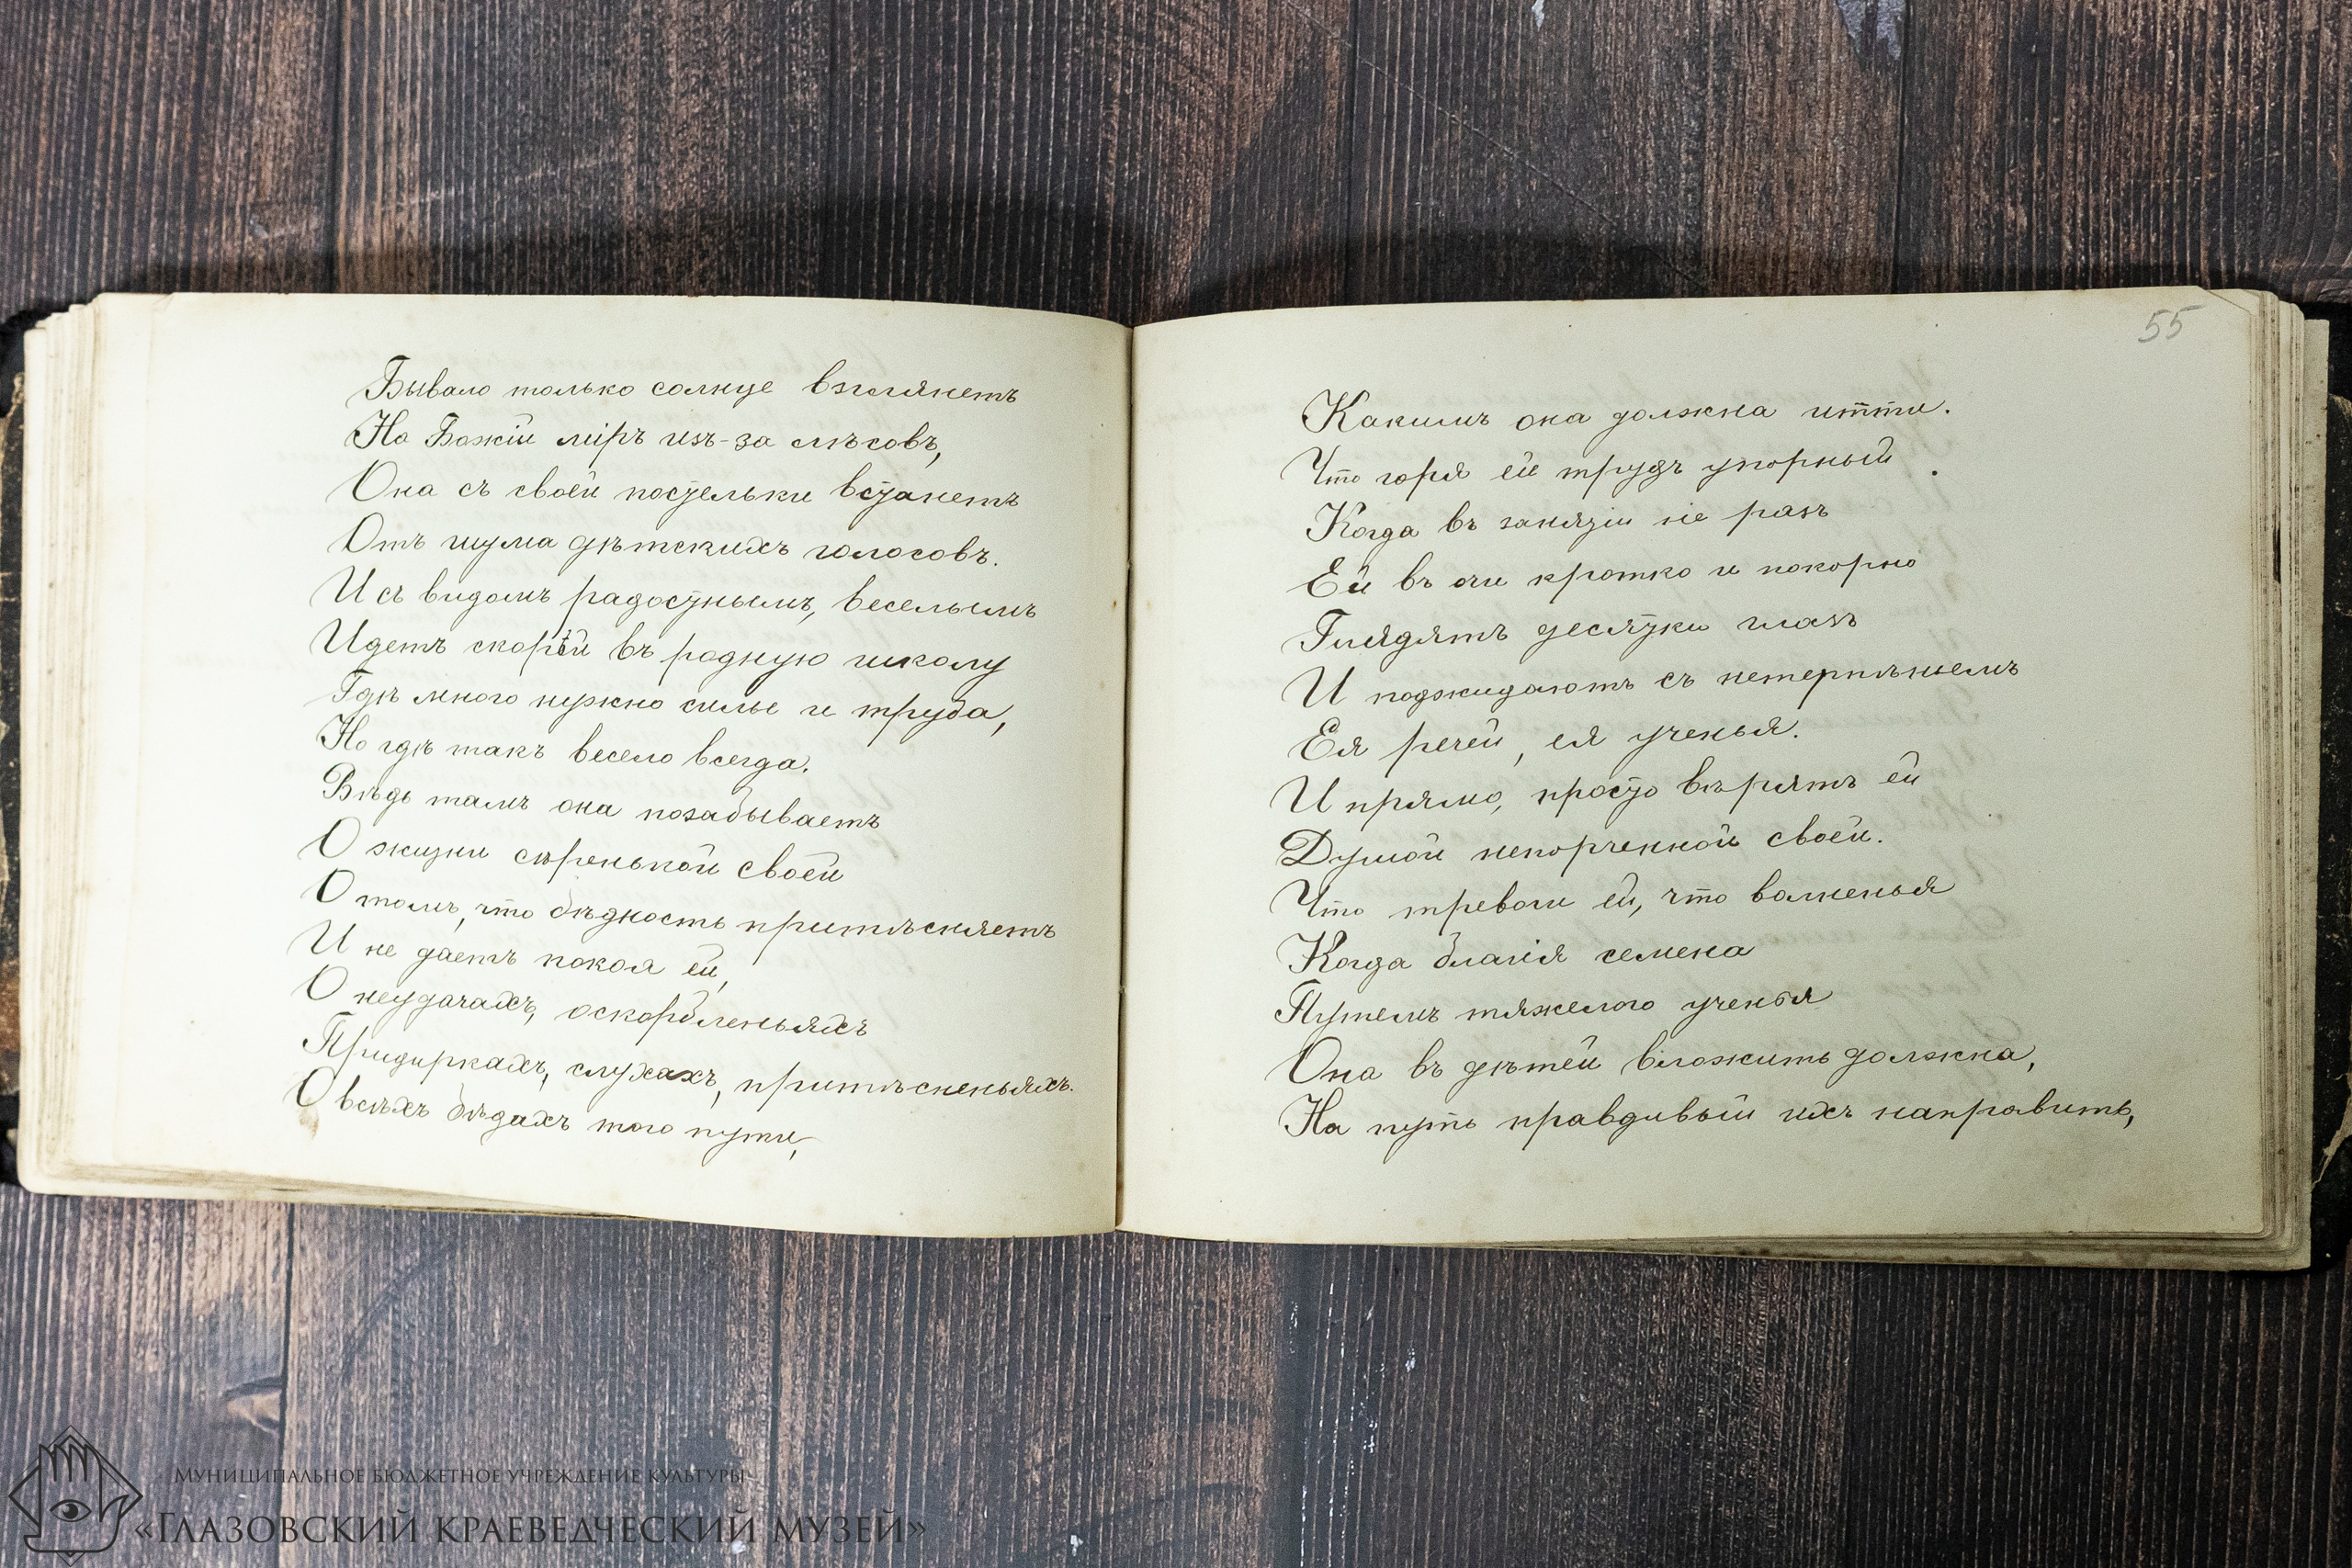 Бывало только солнце взглянетъ
На Божiй мiръ изъ-за лѣсовъ,
Она съ своей постельки встанетъ
Отъ шума дѣтскихъ голосовъ.
И съ видомъ радостнымъ, веселымъ
Идетъ скорѣй въ родную школу
Гдѣ много нужно силы и труда,
Но гдѣ такъ весело всегда.
Вѣдь тамъ она позабываетъ
О жизни сѣренькой своей
О томъ, что бѣдность притѣсняетъ
И не даетъ покоя ей,
О неудачахъ, оскорбленьяхъ
Придиркахъ, слухахъ, притѣсненьяхъ.
О всѣхъ бѣдахъ того пути,
55
Какимъ она должна итти.
Что горя ей трудъ упорный
Когда въ занятiи не разъ
Ей въ очи кротко и покорно
Глядятъ десятки глазъ
И поджидаютъ съ нетерпѣньемъ
Ея речей, ея ученья.
И прямо, просто вѣрятъ ей
Душой непорченной своей.
Что тревоги ей, что волненья
Когда благiя семена
Путемъ тяжелаго ученья
Она въ дѣтей вложить должна,
На путь правдивый ихъ направить,
МУНИЦИПАЛЬНОЕ БЮДЖЕТНОЕ УЧРЕЖДЕНИЕ КУЛЬТУРЫ
«ГЛАЗОВСКИЙ КРАЕВЕДЧЕСКИЙ МУЗЕЙ»